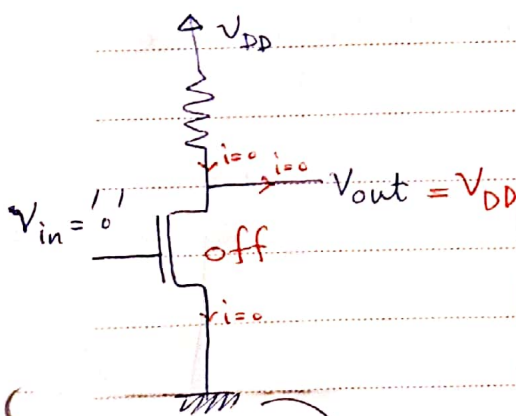 V_DD
i=0
i=0
Vout = V_DD
Vin = '0'
off
i=0